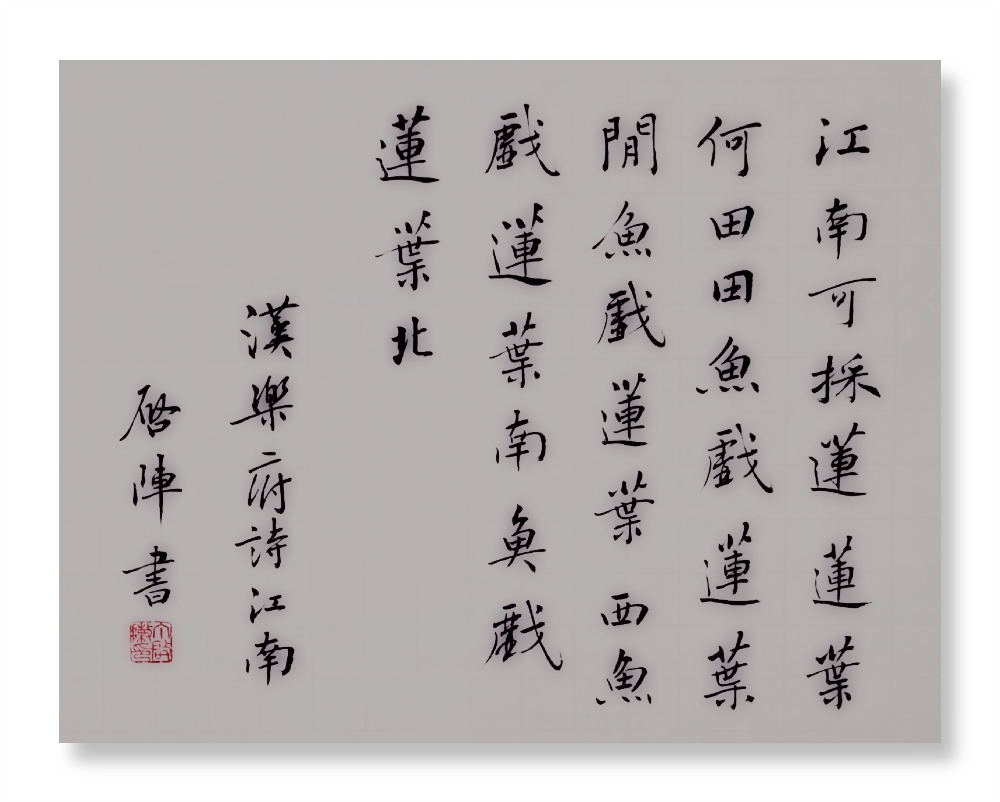 江南可採蓮蓮葉
何田田魚戲蓮葉
閒魚戲蓮葉西魚
戲蓮葉南魚戲
蓮葉北
漢樂府詩江南
启陣書